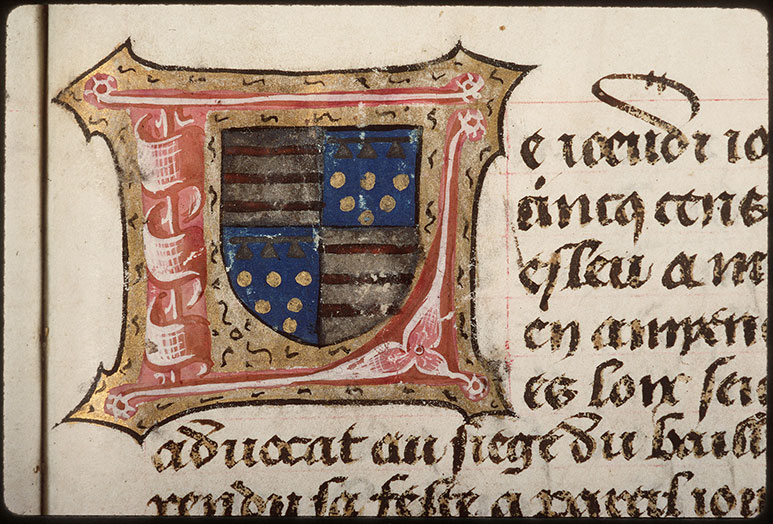 Le ieeudi io
cincq cens
esleu a m
en amyen
es loix sei
advocat au siege du baill
rendu sa feste a